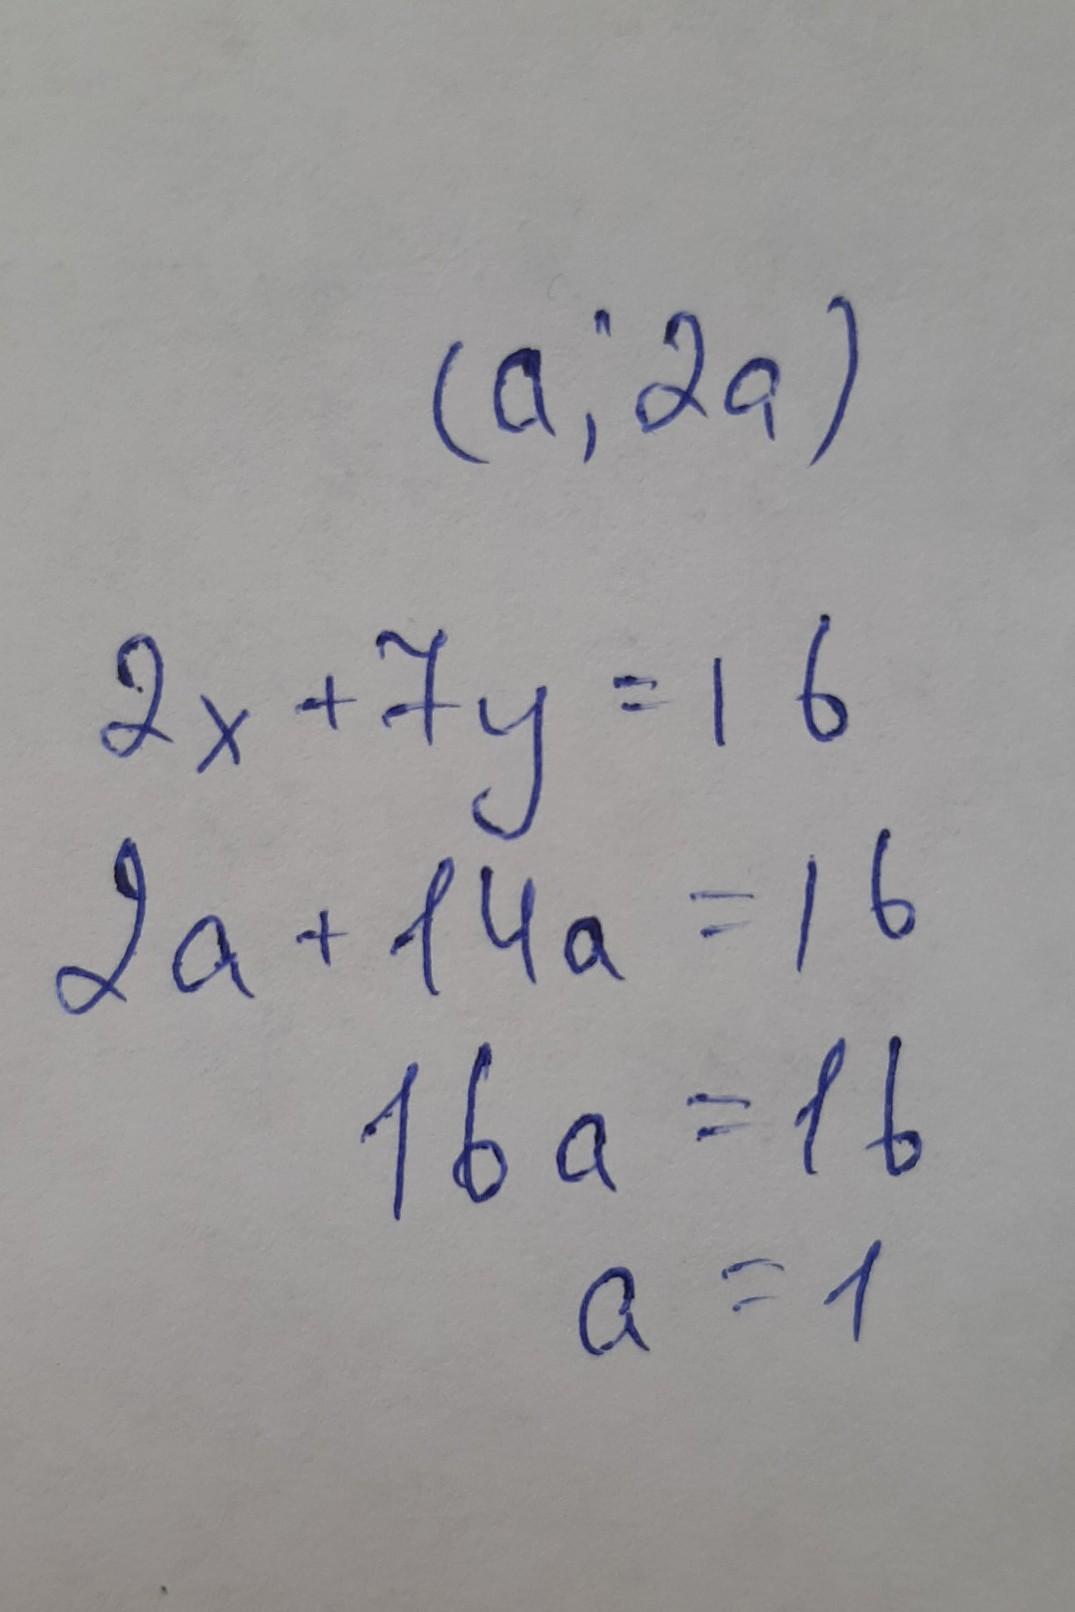 (a; 2a)
2x + 7y = 16
2a + 14a = 16
16a = 16
a = 1